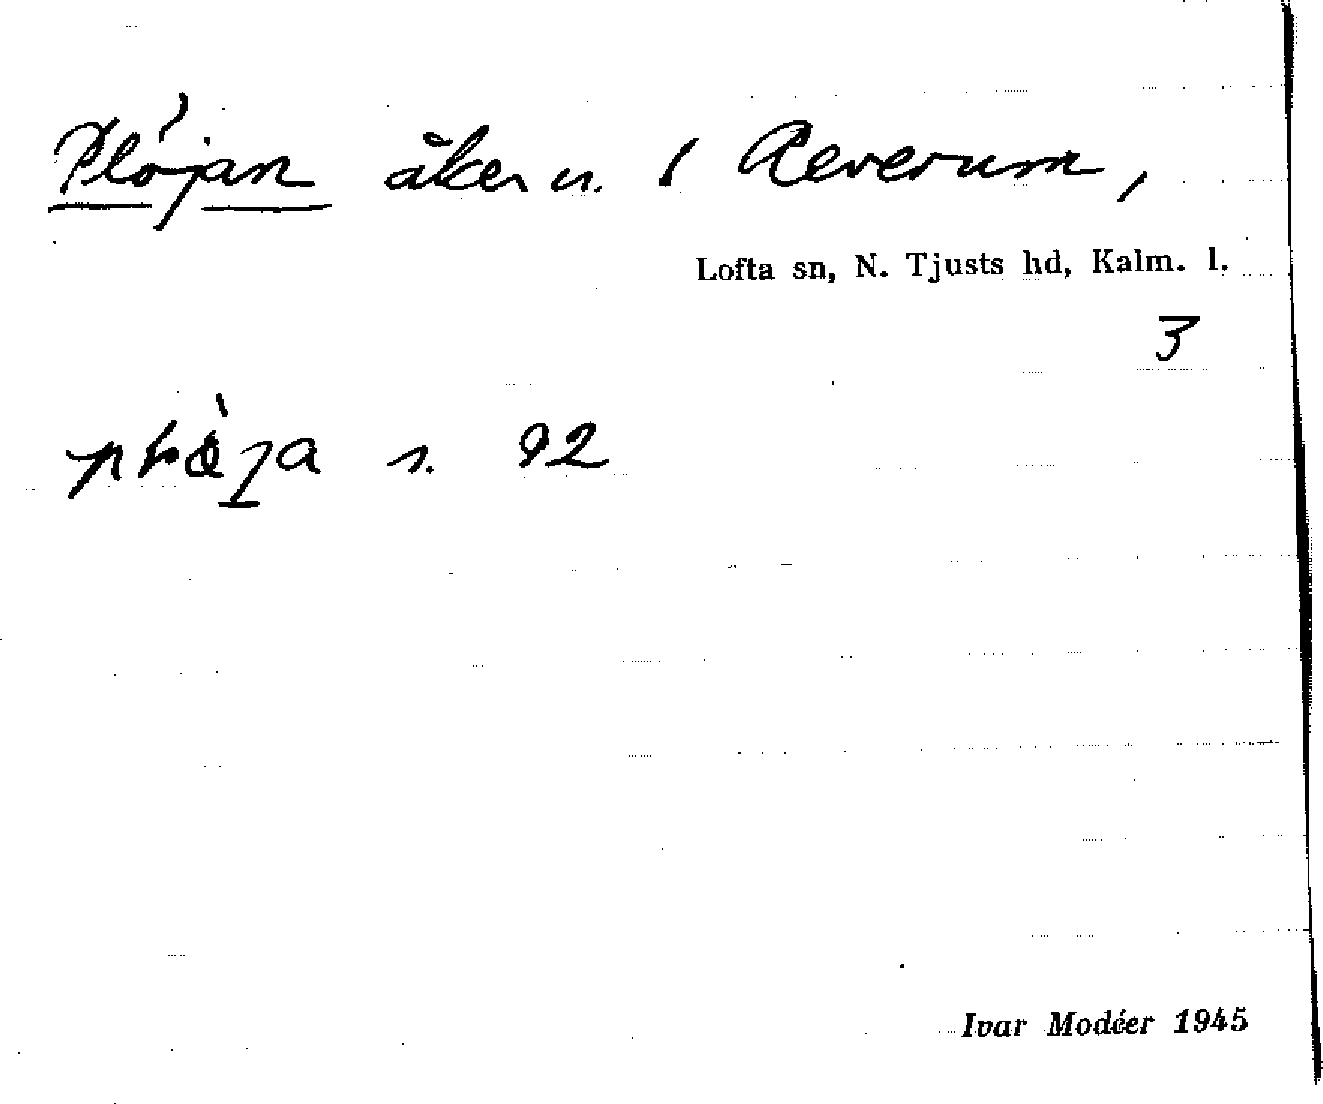 Plöjan åker u. 1 Reverum,
Lofta sn, N. Tjusts hd, Kalm. l.
3
s. 92
Ivar Modéer 1945